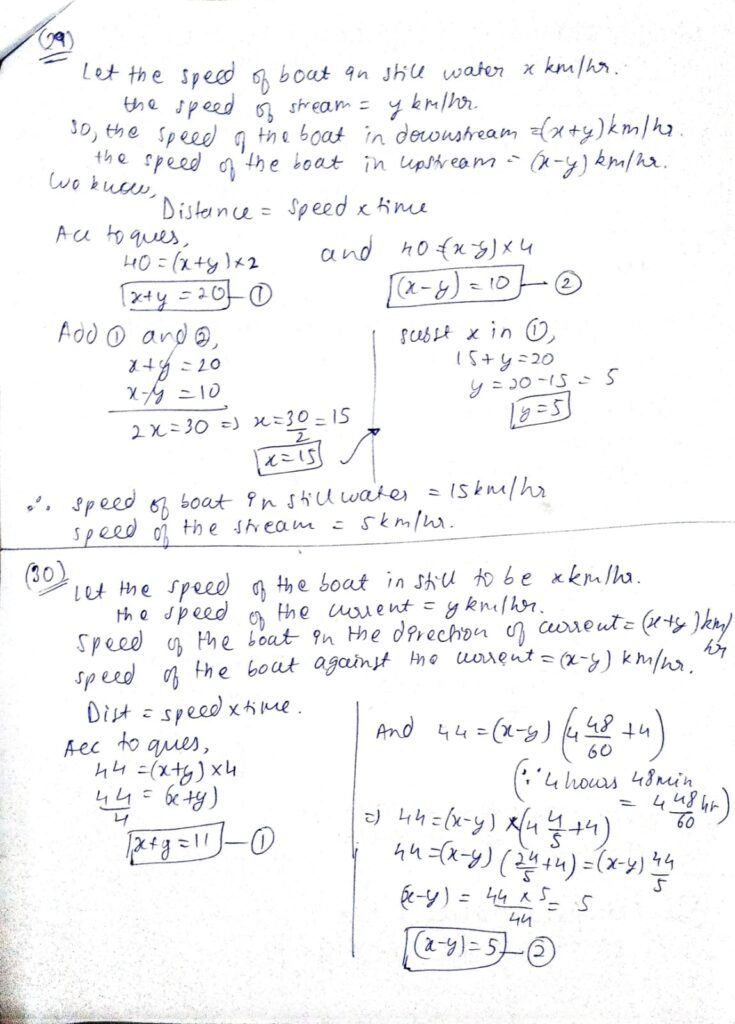 (29)
Let the speed of boat in still water x km/hr.
the speed of stream = y km/hr.
So, the speed of the boat in downstream = (x+y) km/hr.
the speed of the boat in upstream = (x-y) km/hr.
We know,
Distance = speed x time
Acc to ques,
40 = (x+y) x 2
x+y = 20 — ①
and 40 = (x-y) x 4
(x-y) = 10 — ②
Add ① and ②,
x+y = 20
x-y = 10
2x = 30 => x = 30/2 = 15
x = 15
subst x in ①,
15+y = 20
y = 20-15 = 5
y = 5
∴ speed of boat in still water = 15 km/hr
speed of the stream = 5 km/hr.
(30)
Let the speed of the boat in still to be x km/hr.
the speed of the current = y km/hr.
Speed of the boat in the direction of current = (x+y) km/hr
speed of the boat against the current = (x-y) km/hr.
Dist = speed x time.
Acc to ques,
44 = (x+y) x 4
44/4 = (x+y)
x+y = 11 — ①
And 44 = (x-y) (4 48/60 + 4)
(∵ 4 hours 48 min
= 4 48/60 hr)
=> 44 = (x-y) x (4 4/5 + 4)
44 = (x-y) (24/5 + 4) = (x-y) 44/5
(x-y) = 44 x 5/44 = 5
(x-y) = 5 — ②